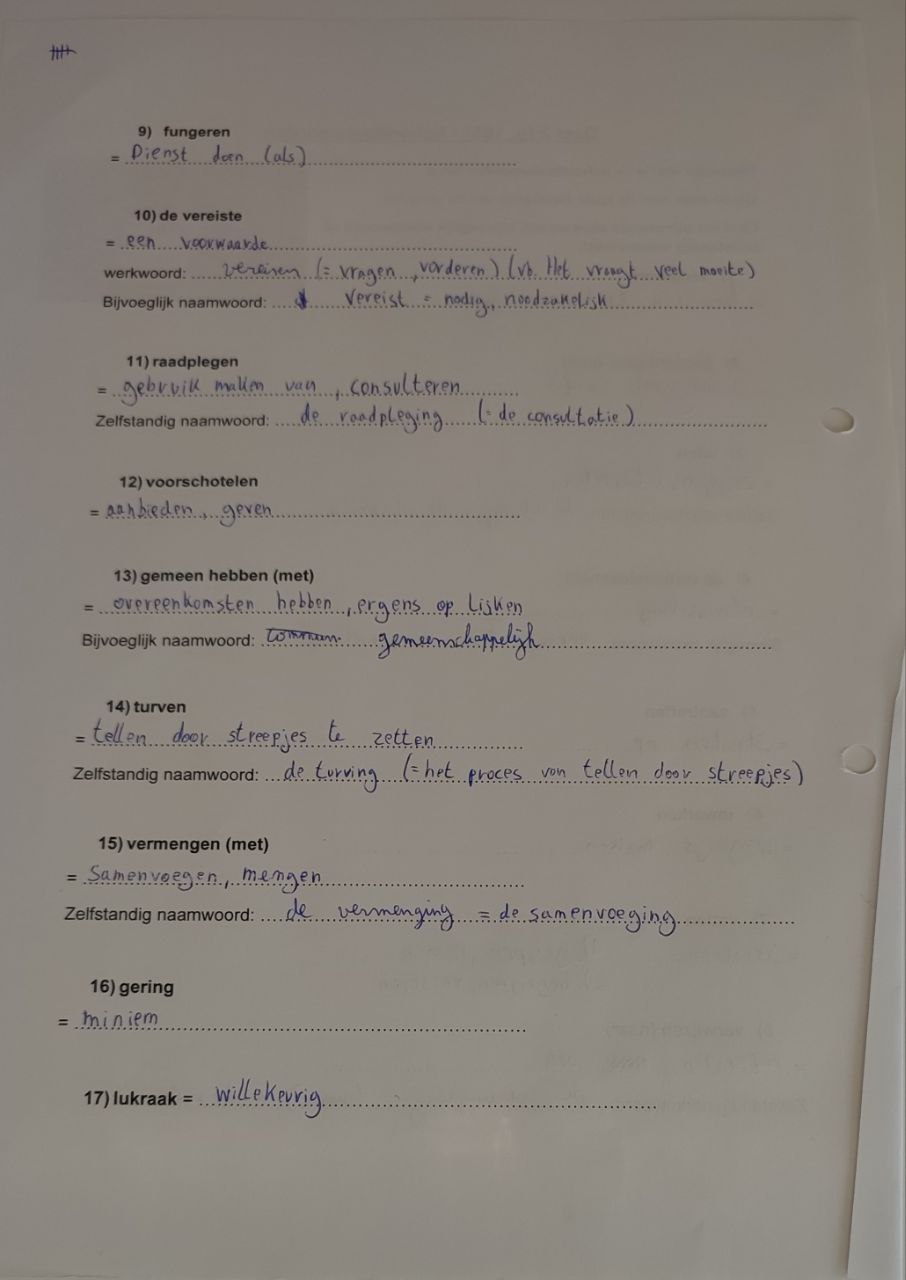 9) fungeren
= Dienst doen (als)
10) de vereiste
= een voorwaarde
werkwoord: vereisen (= vragen, vorderen) (vb. Het vraagt veel moeite)
Bijvoeglijk naamwoord: vereist = nodig, noodzakelijk
11) raadplegen
= gebruik maken van, consulteren
Zelfstandig naamwoord: de raadpleging (= de consultatie)
12) voorschotelen
= aanbieden, geven
13) gemeen hebben (met)
= overeenkomsten hebben, ergens op lijken
Bijvoeglijk naamwoord: gemeenschappelijk
14) turven
= tellen door streepjes te zetten
Zelfstandig naamwoord: de turving (= het proces van tellen door streepjes)
15) vermengen (met)
= Samenvoegen, mengen
Zelfstandig naamwoord: de vermenging = de samenvoeging
16) gering
= miniem
17) lukraak = willekeurig